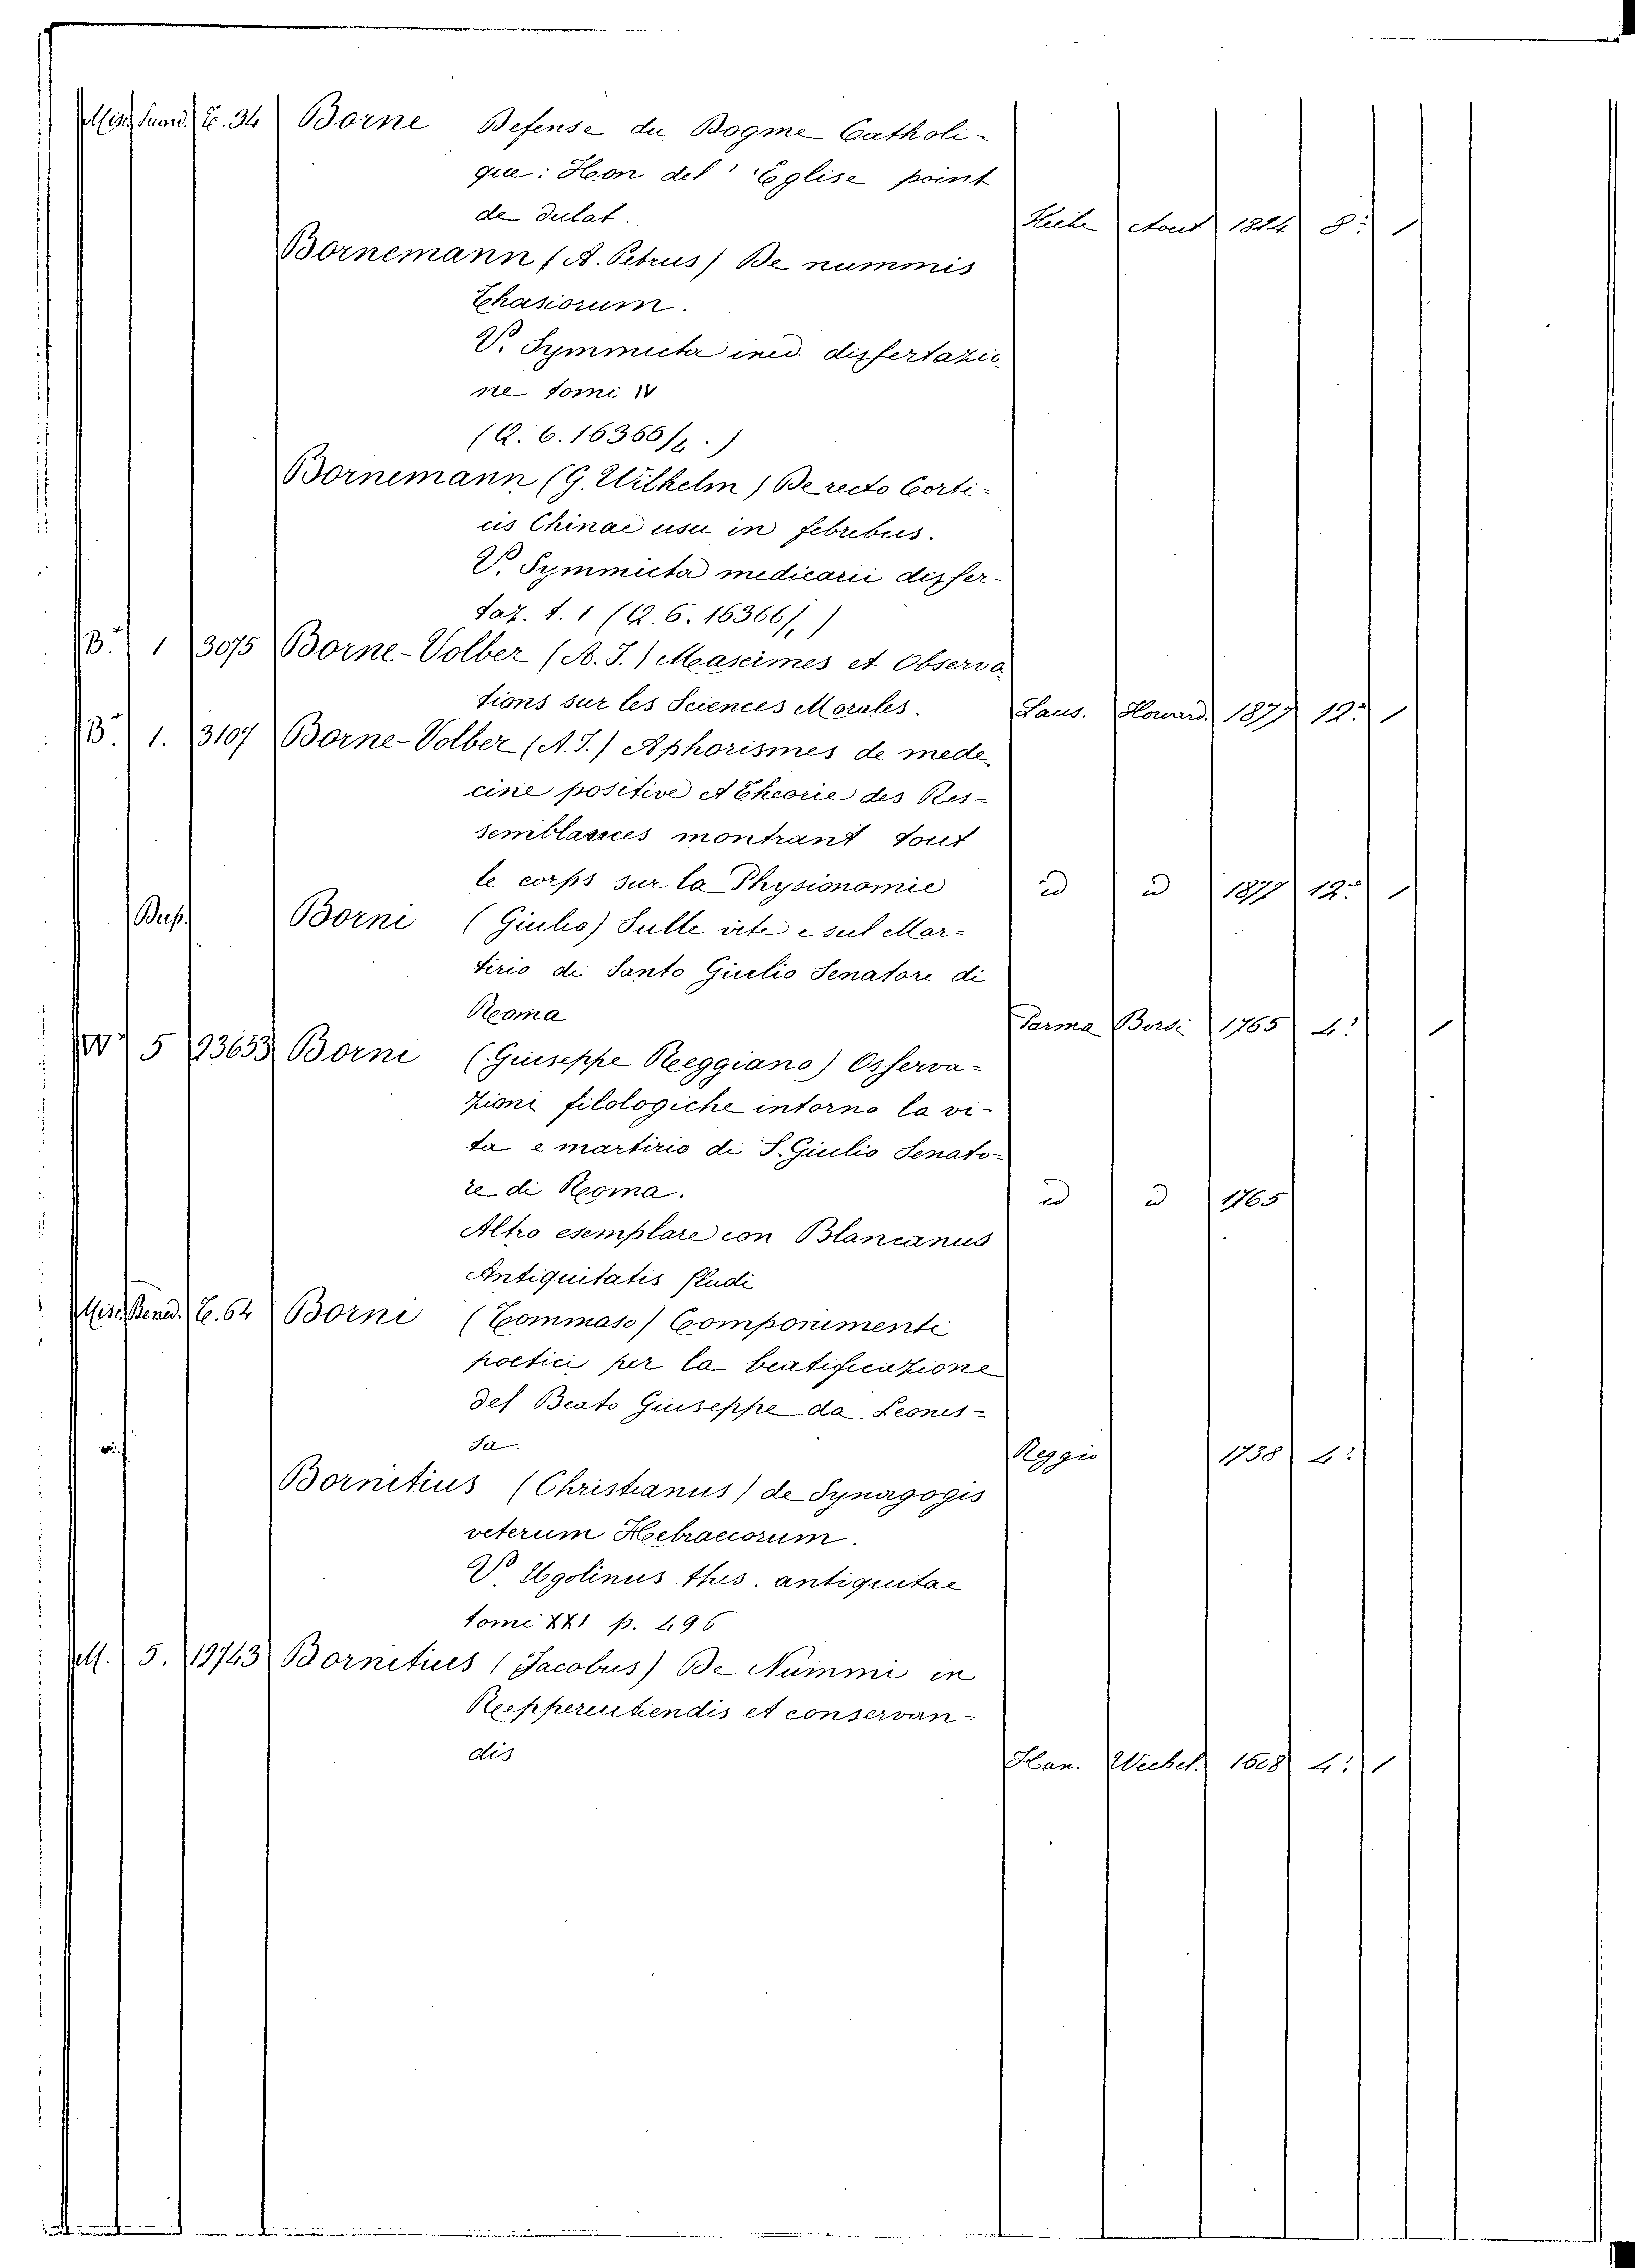 Misc. Sund. T. 34 Borne Defense du Dogme Catholi-
que: Hon del' Eglise point
de dulat. Aout 1824 8: 1
Bornemann (A. Petrus) De nummis
Thasiorum.
V. Symmicta ined. dissertazio
ne tomi IV
(Q. 6. 16366/4.)
Bornemann (G. Wilhelm) De recto Corti-
cis Chinae usu in febrebus.
V. Symmicta medicarii disser-
taz. t. 1 (Q. 6. 16366/1)
B. 1 3075 Borne-Volber (A. J.) Maximes et Observa
tions sur les Sciences Morales. Laus. Howard. 1877 12: 1
B. 1. 3107 Borne-Volber (A. J.) Aphorismes de mede-
cine positive et Theorie des Res-
semblances montrant tout
le corps sur la Physionomie id id 1877 12: 1
Dup. Borni (Giulio) Sulle vite e sul Mar-
tirio di Santo Giulio Senatore di
Roma Parma Borsi 1765 4: 1
W 5 23653 Borni (Giuseppe Reggiano) Osserva-
zioni filologiche intorno la vi-
ta e martirio di S. Giulio Senato-
re di Roma. id id 1765
Altro esemplare con Blancanus
Antiquitatis fludi
Misc. Bened. T. 64 Borni (Tommaso) Componimenti
poetici per la beatificazione
del Beato Giuseppe da Leones-
sa. Reggio 1738 4:
Bornitius (Christianus) de Synagogis
veterum Hebraeorum.
V. Ugolinus thes. antiquitae
tomi XXI p. 496
M. 5. 19743 Bornitius (Jacobus) De Nummi in
Reppercutiendis et conservan-
dis Han. Wechel. 1608 4: 1